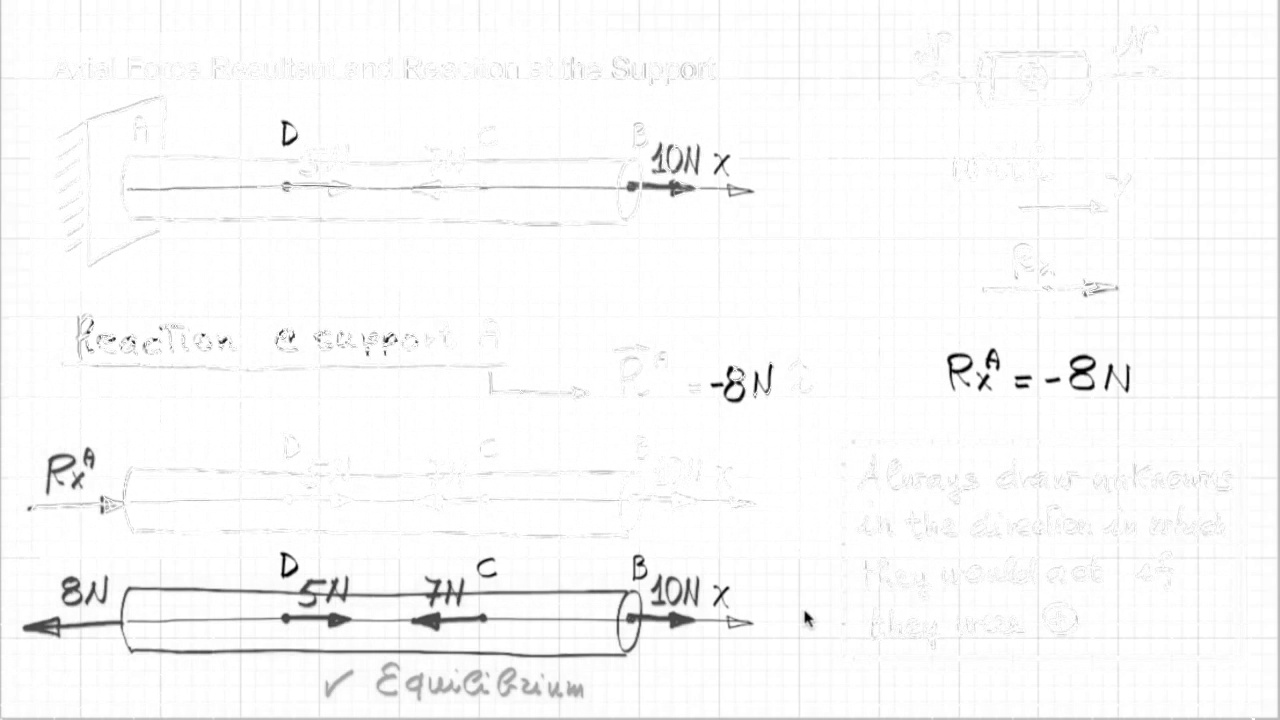 Axial Force Resultant and Reaction at the Support
N N
A D 5N 7N C B 10N x
x
Rx
Reaction @ support A
R A = -8N
RxA = -8N
RxA D 5N 7N C B 10N x
Always draw unknowns
in the direction in which
they would act if
they were +
8N D 5N 7N C B 10N x
✓ Equilibrium